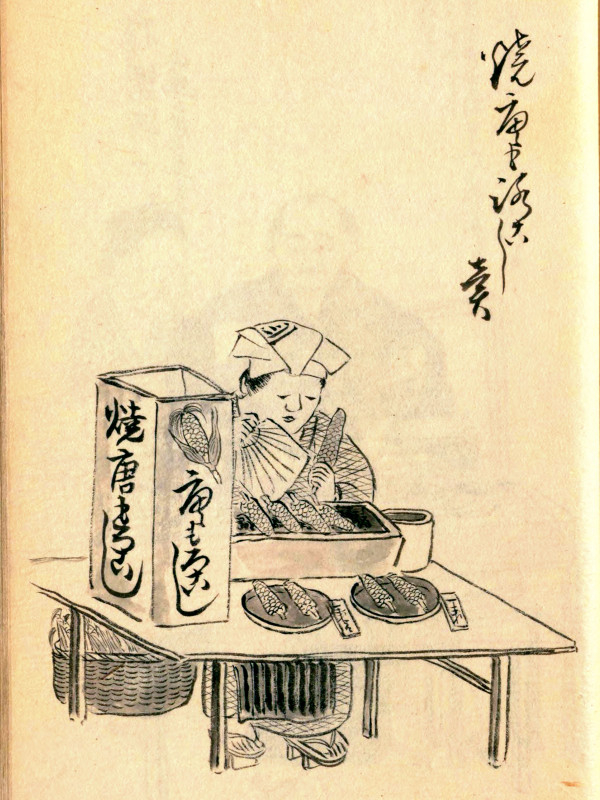 焼唐もろこし
売
焼唐もろこし
唐もろこし